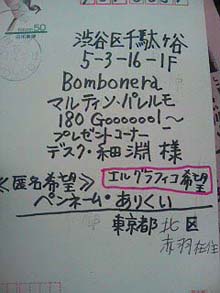 50
渋谷区千駄ヶ谷
5-3-16-1F
Bombonera
マルティン・パレルモ
180 Goooooo!~
プレゼントコーナー
デスク・細淵 様
≪匿名希望≫
エルグラフィコ希望
ペンネーム・ありくい
東京都 北区
赤羽在住